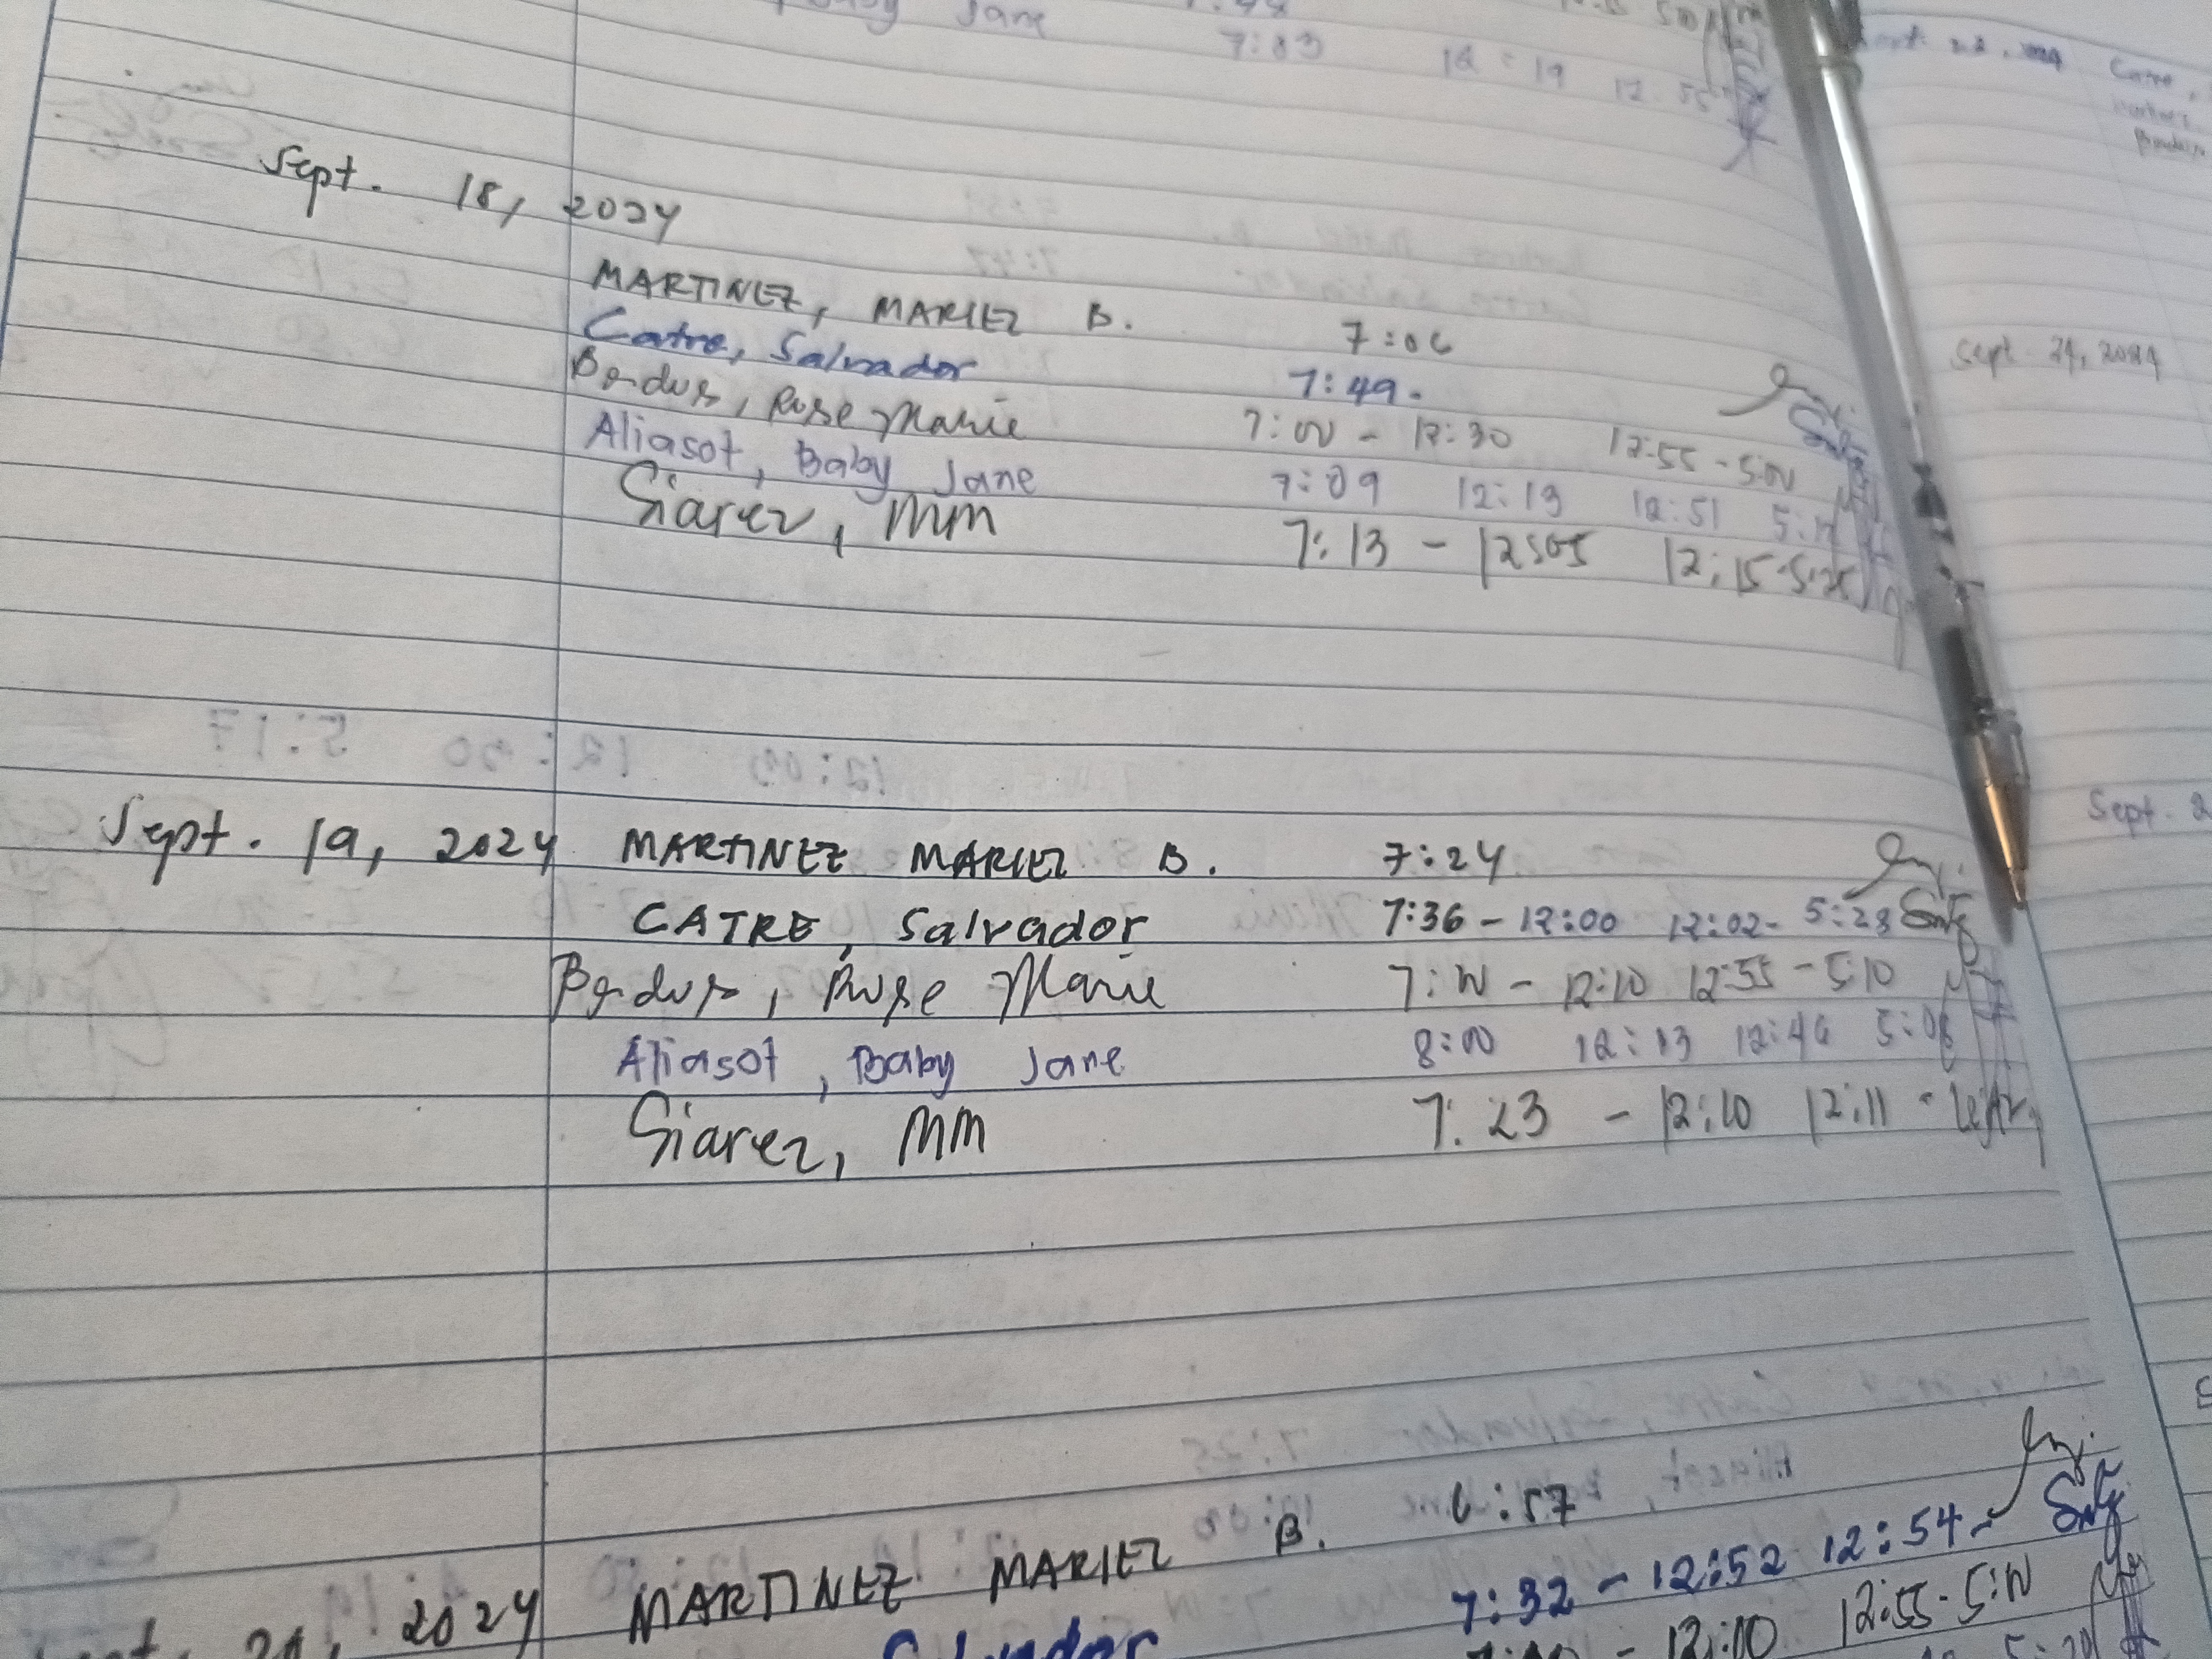 Baby Jane 7:44
7:03 12:19 12:55
Sept. 18, 2024
MARTINEZ, MARIEZ B. 7:06
Catre, Salvador 7:49.
Rose Marie 7:00 - 12:30 12:55 - 5:00
Aliasot, Baby Jane 7:09 12:13 12:51
Siarez, MM 7:13 - 12:05 12:15-5:25
Sept. 19, 2024 MARTINEZ MARIEZ B. 7:24
CATRE, Salvador 7:36 - 12:00 12:02- 5:23
Rose Marie 7:00 - 12:10 12:55 - 5:10
Aliasot, Baby Jane 8:00 12:13 12:46 5:08
Siarez, MM 7:23 - 12:10 12:11 -
2024 MARTINEZ MARIEZ B. 6:57
Salvador 7:32 - 12:52 12:54-
12:00 12:55-5:00
Sept. 24, 2024
Sept.